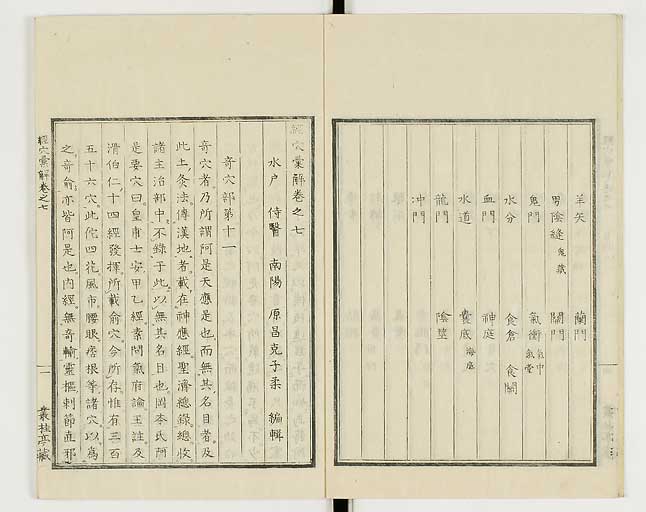 羊矢　蘭門
男陰縫 鬼藏　關門
鬼門　氣衝 氣中 氣堂
水分　食倉　食關
血門　神庭
水道　囊底 海底
龍門　陰莖
冲門
經穴彙解卷之七
水户　侍醫　南陽　原昌克子柔　編輯
奇穴部第十一
奇穴者乃所謂阿是天應是也而無其名目者及
此土灸法傳漢地者載在神應經聖濟總錄總收
諸主治部中不錄于此以無其名目也岡本氏阿
是要穴曰皇甫士安甲乙經素問氣府論王註及
滑伯仁十四經發揮所載俞穴今所存惟有三百
五十六穴此你四花風市腰眼痞根等諸穴以爲
之奇俞亦皆阿是也内經無奇輸靈樞刺節直邪
經穴彙解卷之七
一
叢桂亭藏